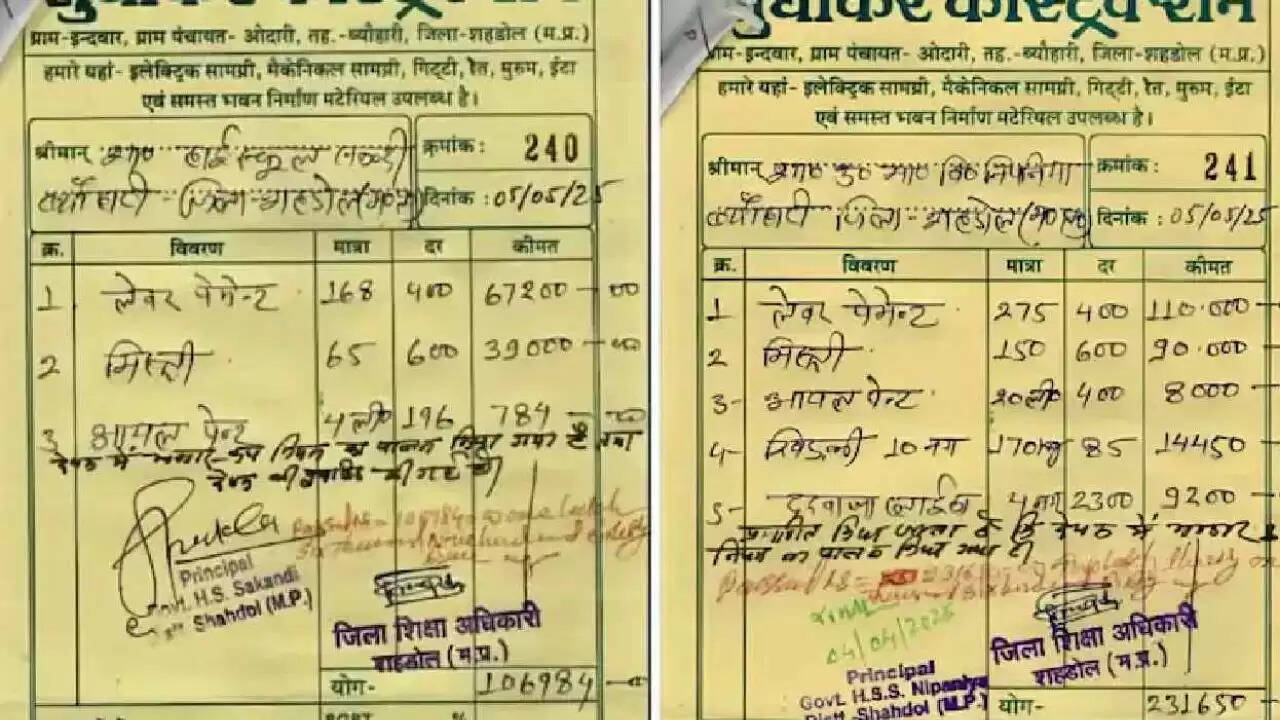 सुधाकर कंस्ट्रक्शन
ग्राम-इन्दवार, ग्राम पंचायत- ओदारी, तह.-ब्यौहारी, जिला-शहडोल (म.प्र.)
हमारे यहां- इलेक्ट्रिक सामग्री, मैकेनिकल सामग्री, गिट्टी, रेत, मुरुम, ईटा
एवं समस्त भवन निर्माण मटेरियल उपलब्ध है।
श्रीमान् हाई स्कूल क्रमांक : 240
जिला-शहडोल (म०प्र०) दिनांक : 05/05/25
क्र. विवरण मात्रा दर कीमत
1 लेबर पेमेन्ट 168 400 67200 - 00
2 मिस्त्री 65 600 39000 - 00
3 आयल पेन्ट 4 ली० 196 784 - 00
देयक में भण्डार-क्रय नियम का पालन किया गया है तथा
देयक की
Shukla
Principal
Govt. H.S. Sakandi
Distt. Shahdol (M.P.)
जिला शिक्षा अधिकारी
शहडोल (म.प्र.)
योग- 106984
सुधाकर कंस्ट्रक्शन
ग्राम-इन्दवार, ग्राम पंचायत- ओदारी, तह.-ब्यौहारी, जिला-शहडोल (म.प्र.)
हमारे यहां- इलेक्ट्रिक सामग्री, मैकेनिकल सामग्री, गिट्टी, रेत, मुरुम, ईटा
एवं समस्त भवन निर्माण मटेरियल उपलब्ध है।
श्रीमान् क्रमांक : 241
जिला-शहडोल (म०प्र०) दिनांक : 05/05/25
क्र. विवरण मात्रा दर कीमत
1 लेबर पेमेन्ट 275 400 110.000
2 मिस्त्री 150 600 90.000
3- आयल पेन्ट 20 ली० 400 8000
4- खिड़की 10 नग 170 85 14450
5- दरवाजा 4 नग 2300 9200
प्रमाणित किया जाता है कि देयक में भण्डार
नियम का पालन किया गया है।
04/04/2025
Principal
Govt. H.S.S. Nipaniya
Distt.-Shahdol (M.P.)
जिला शिक्षा अधिकारी
शहडोल (म.प्र.)
योग- 231650